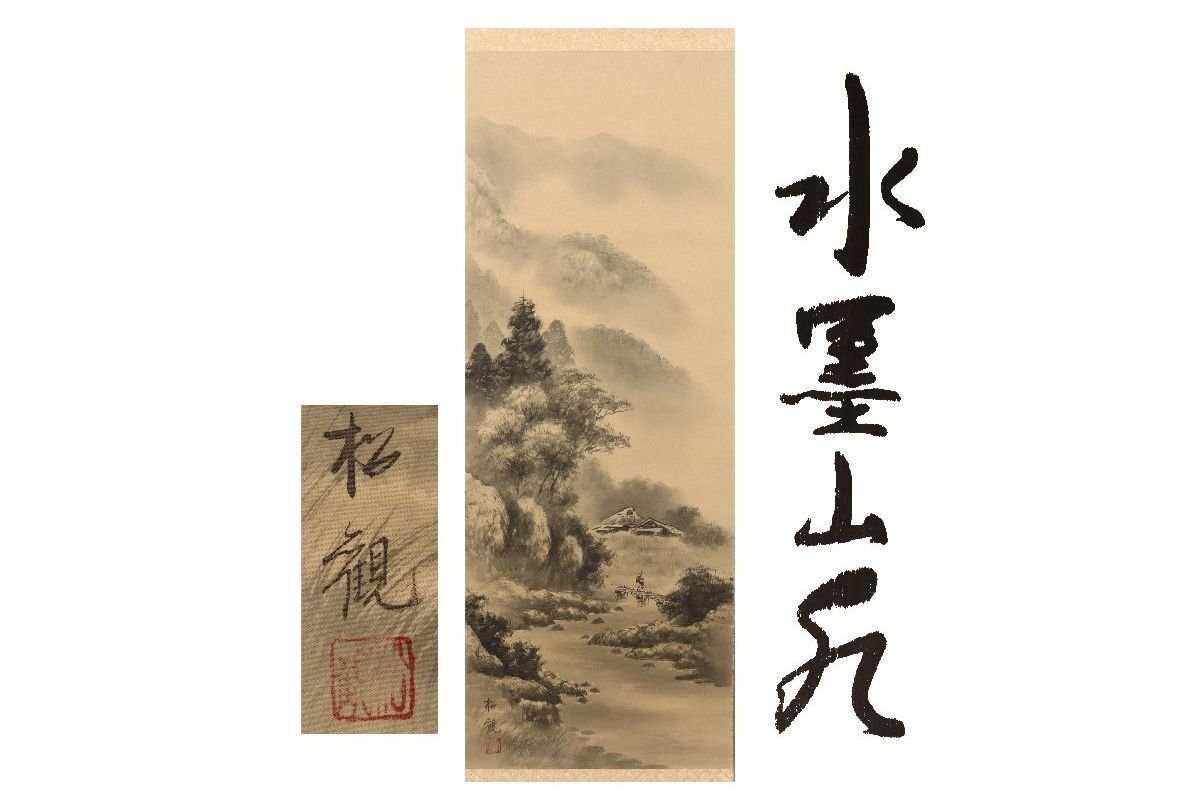 水墨山水
松観
松観